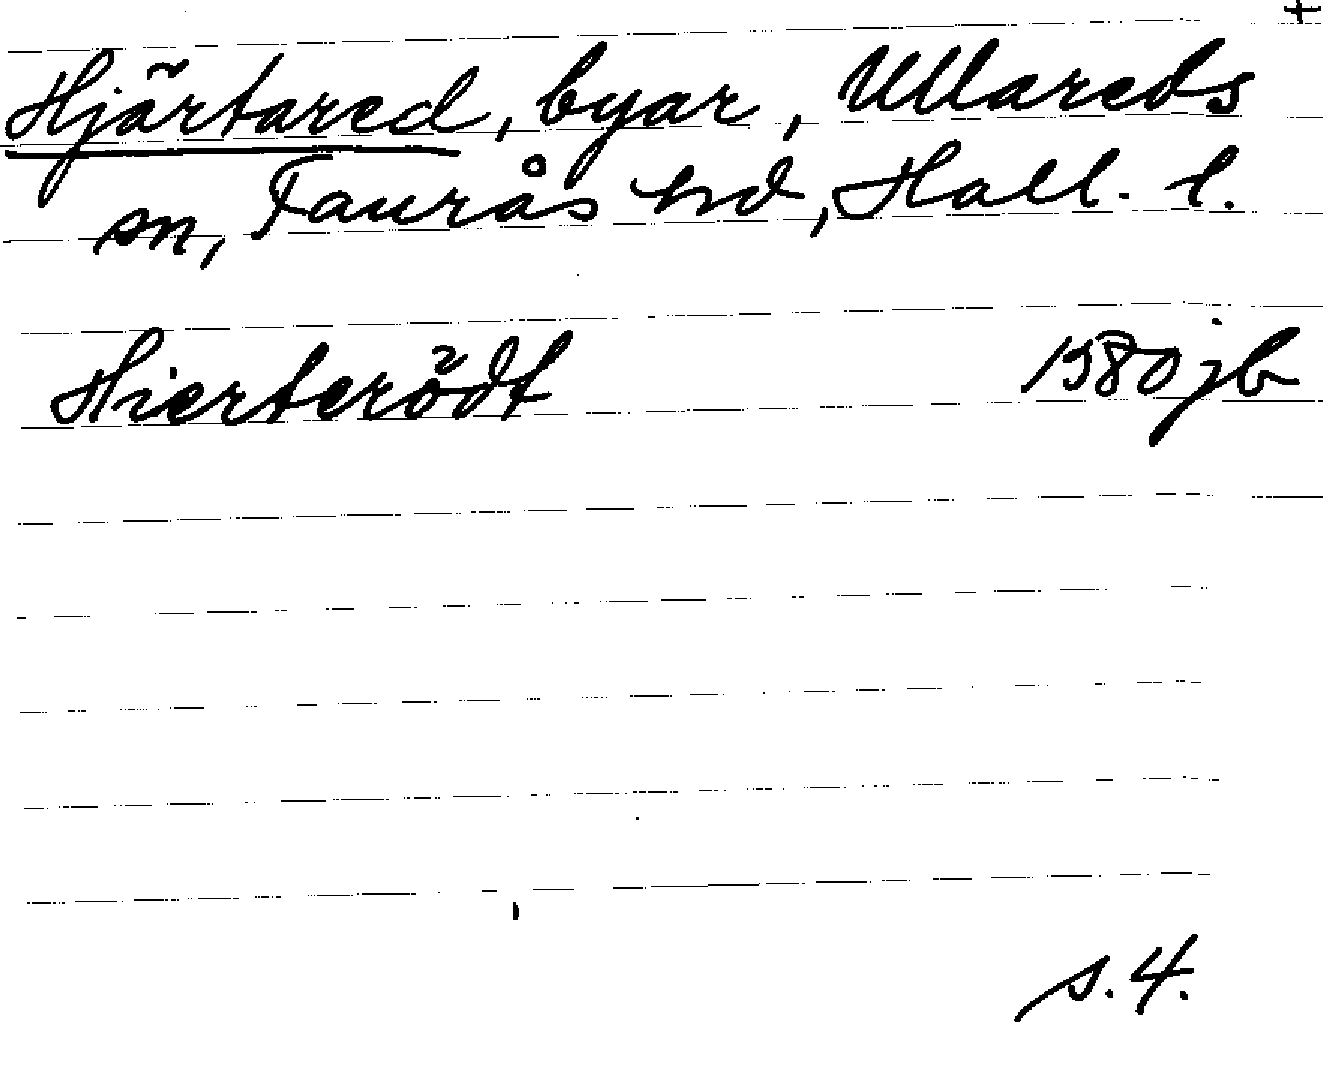 +
Hjärtared, byar, Ullareds
sn, Faurås hd, Hall. l.
Hierterödt 1580 jb
s. 4.